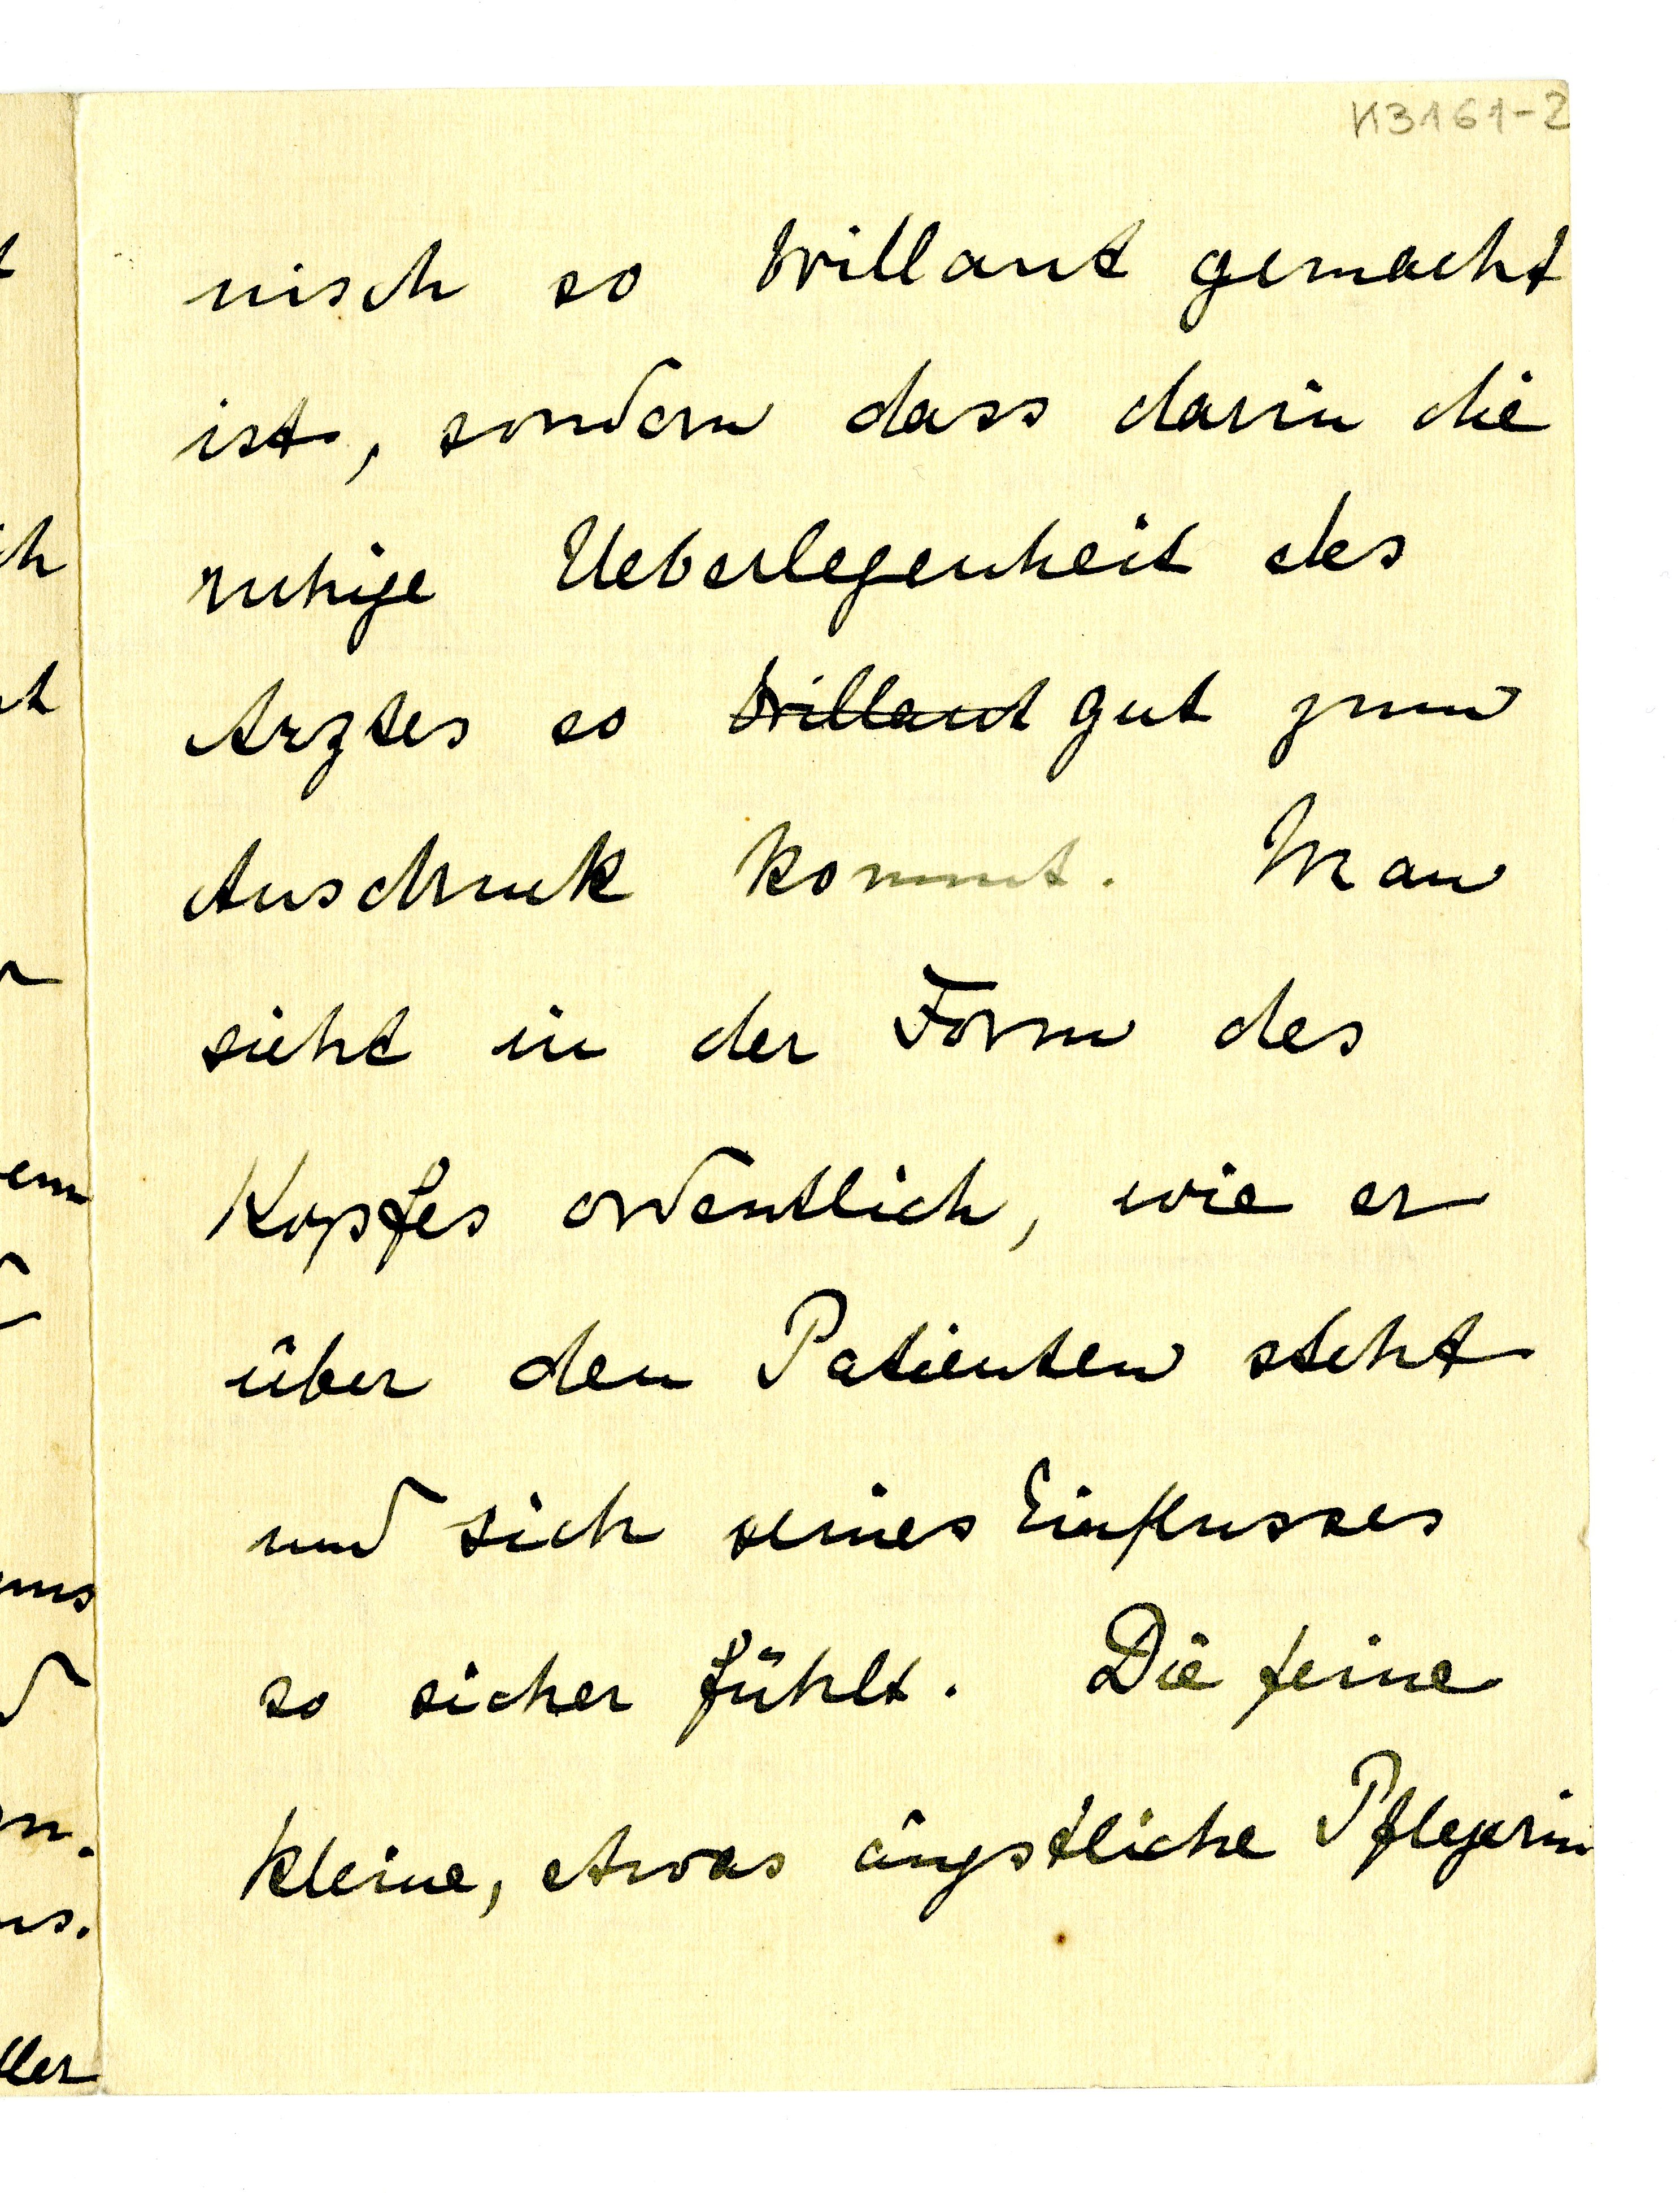 K3161-2
nisch so brillant gemacht
ist, sondern dass darin die
ruhige Ueberlegenheit des
Arztes so brillant gut zum
Ausdruck kommt. Man
sieht in der Form des
Kopfes ordentlich, wie er
über den Patienten steht
und sich seines Einflusses
so sicher fühlt. Die feine
kleine, etwas ängstliche Pflegerin